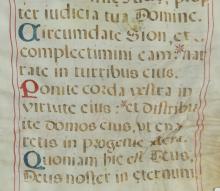 pter iudicia tua Domine.
Circumdate Sion, et
complectimini eam: nar
rate in turribus eius.
Ponite corda vestra in
virtute eius: et distribui
te domos eius, ut enar
retis in progenie altera.
Quoniam hic est Deus,
Deus noster in æternum